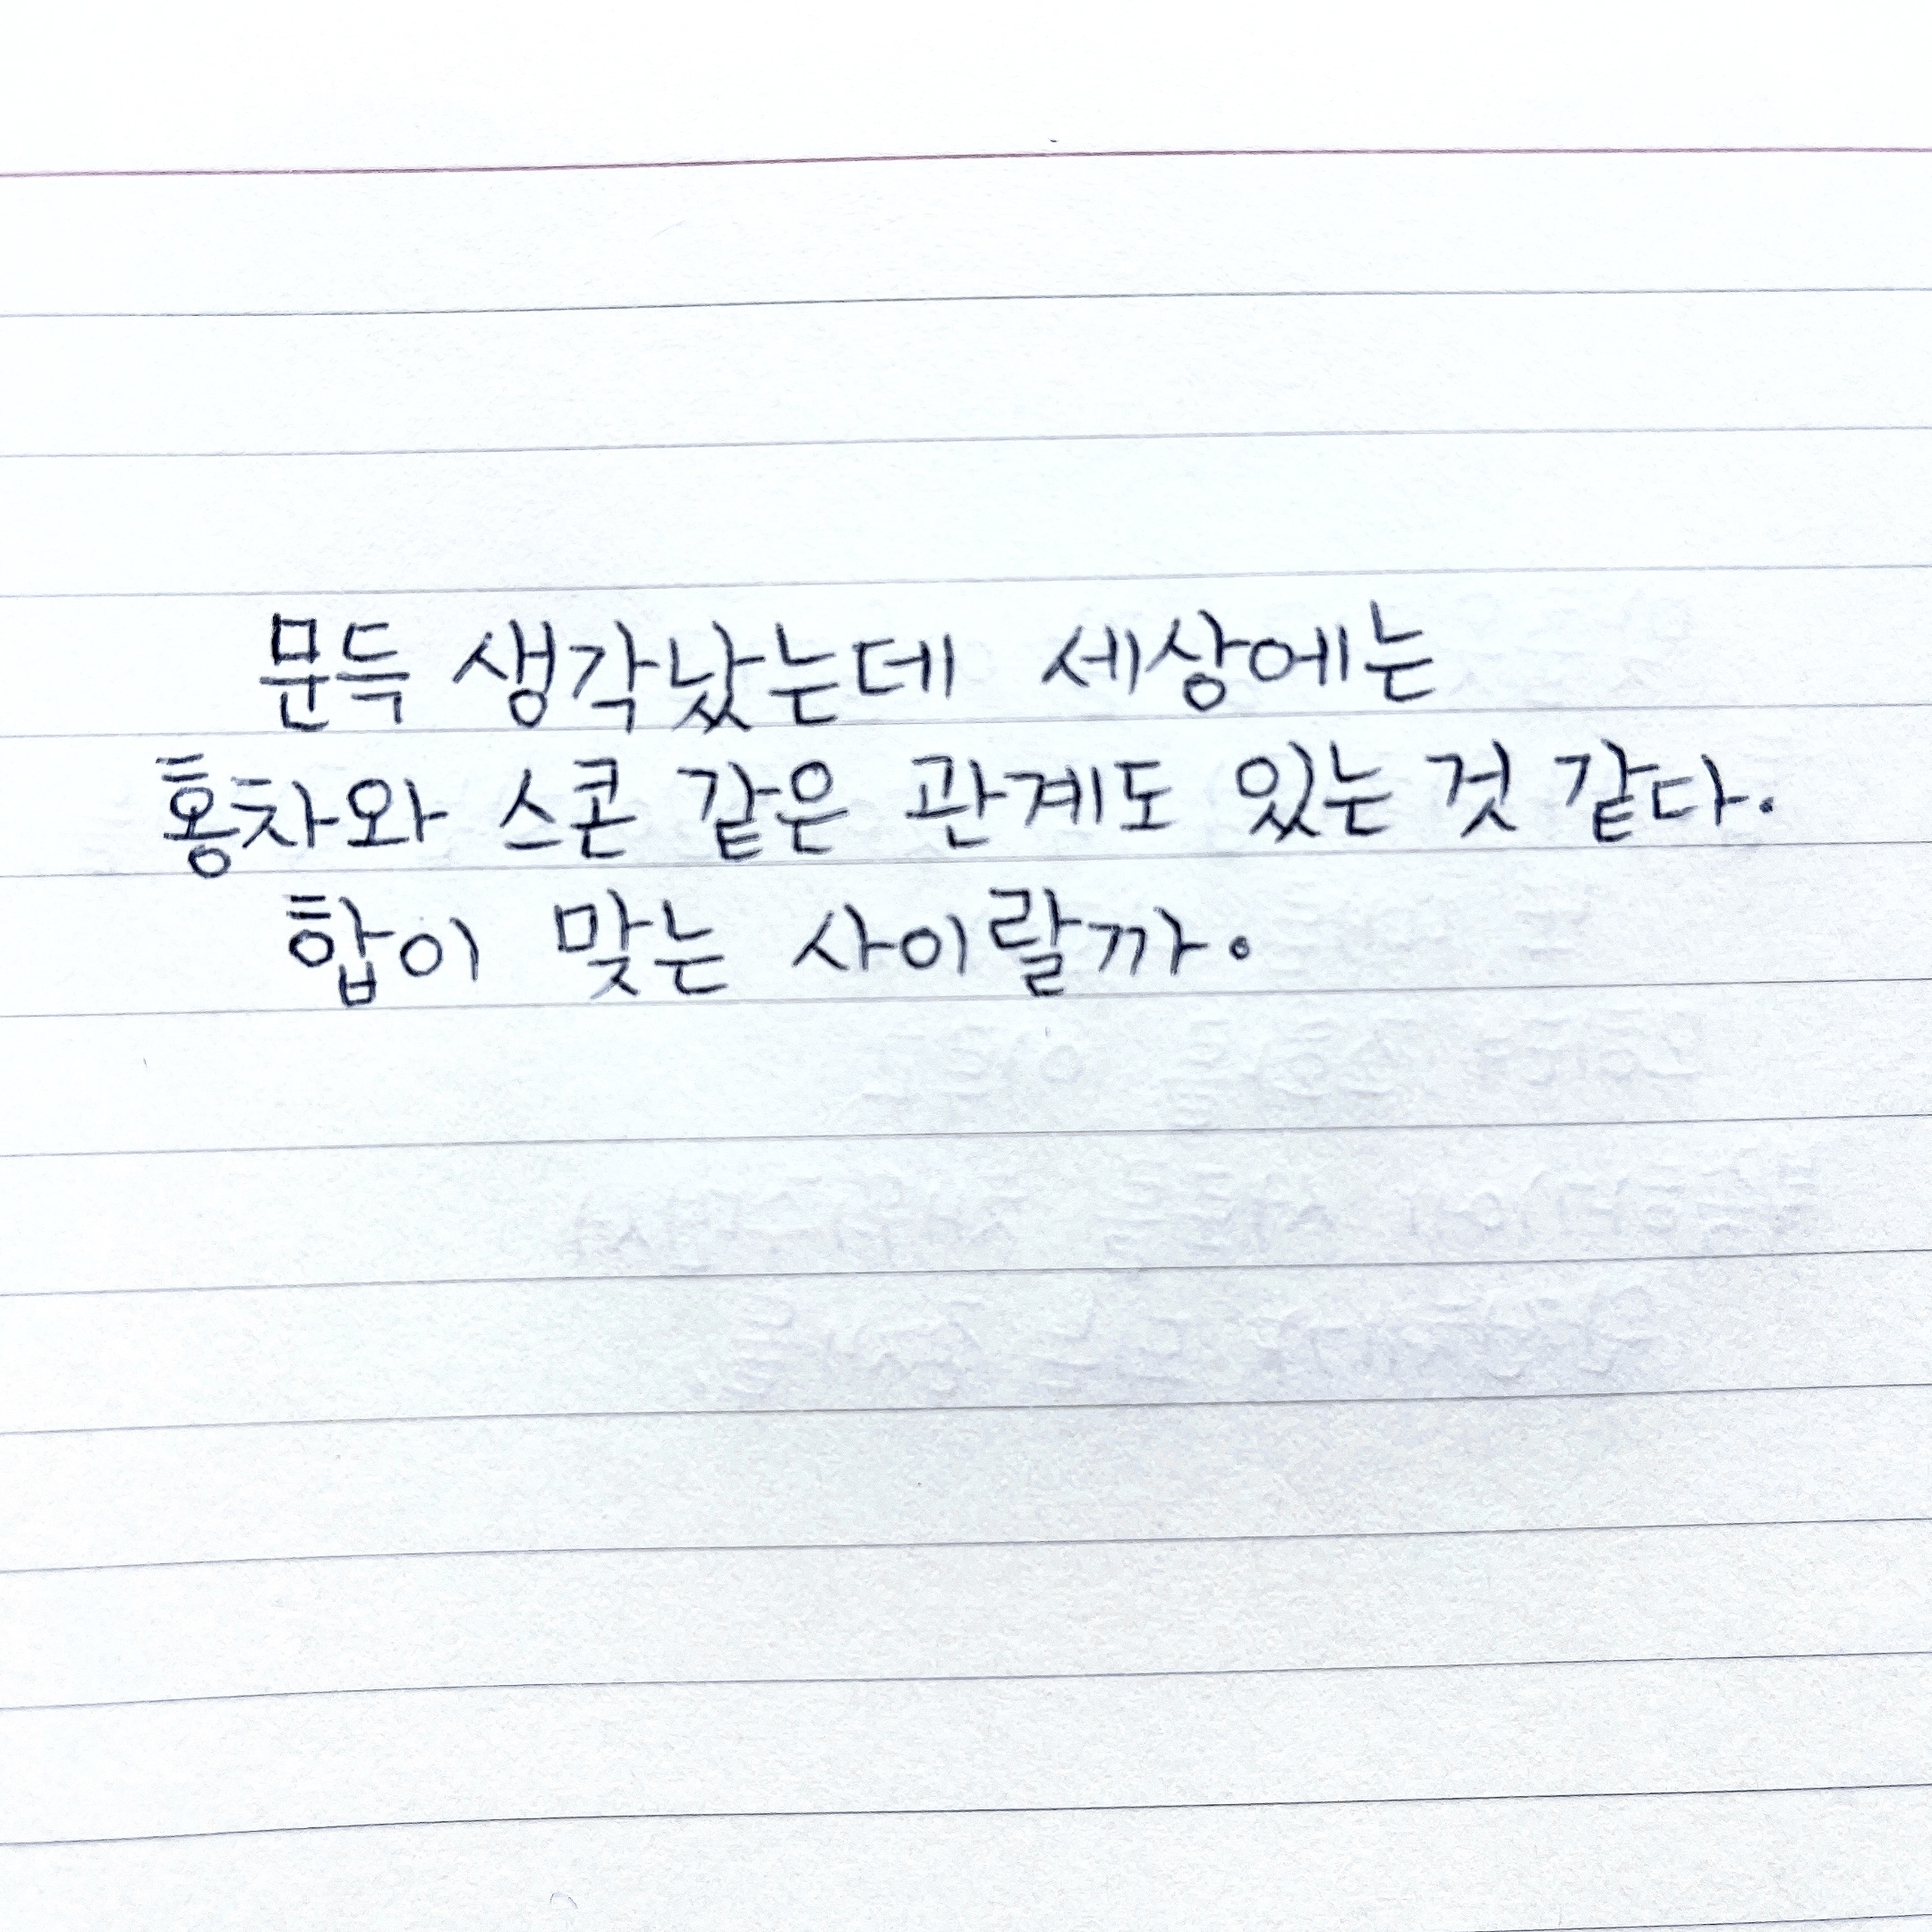 문득 생각났는데 세상에는
홍차와 스콘 같은 관계도 있는 것 같다.
합이 맞는 사이랄까.